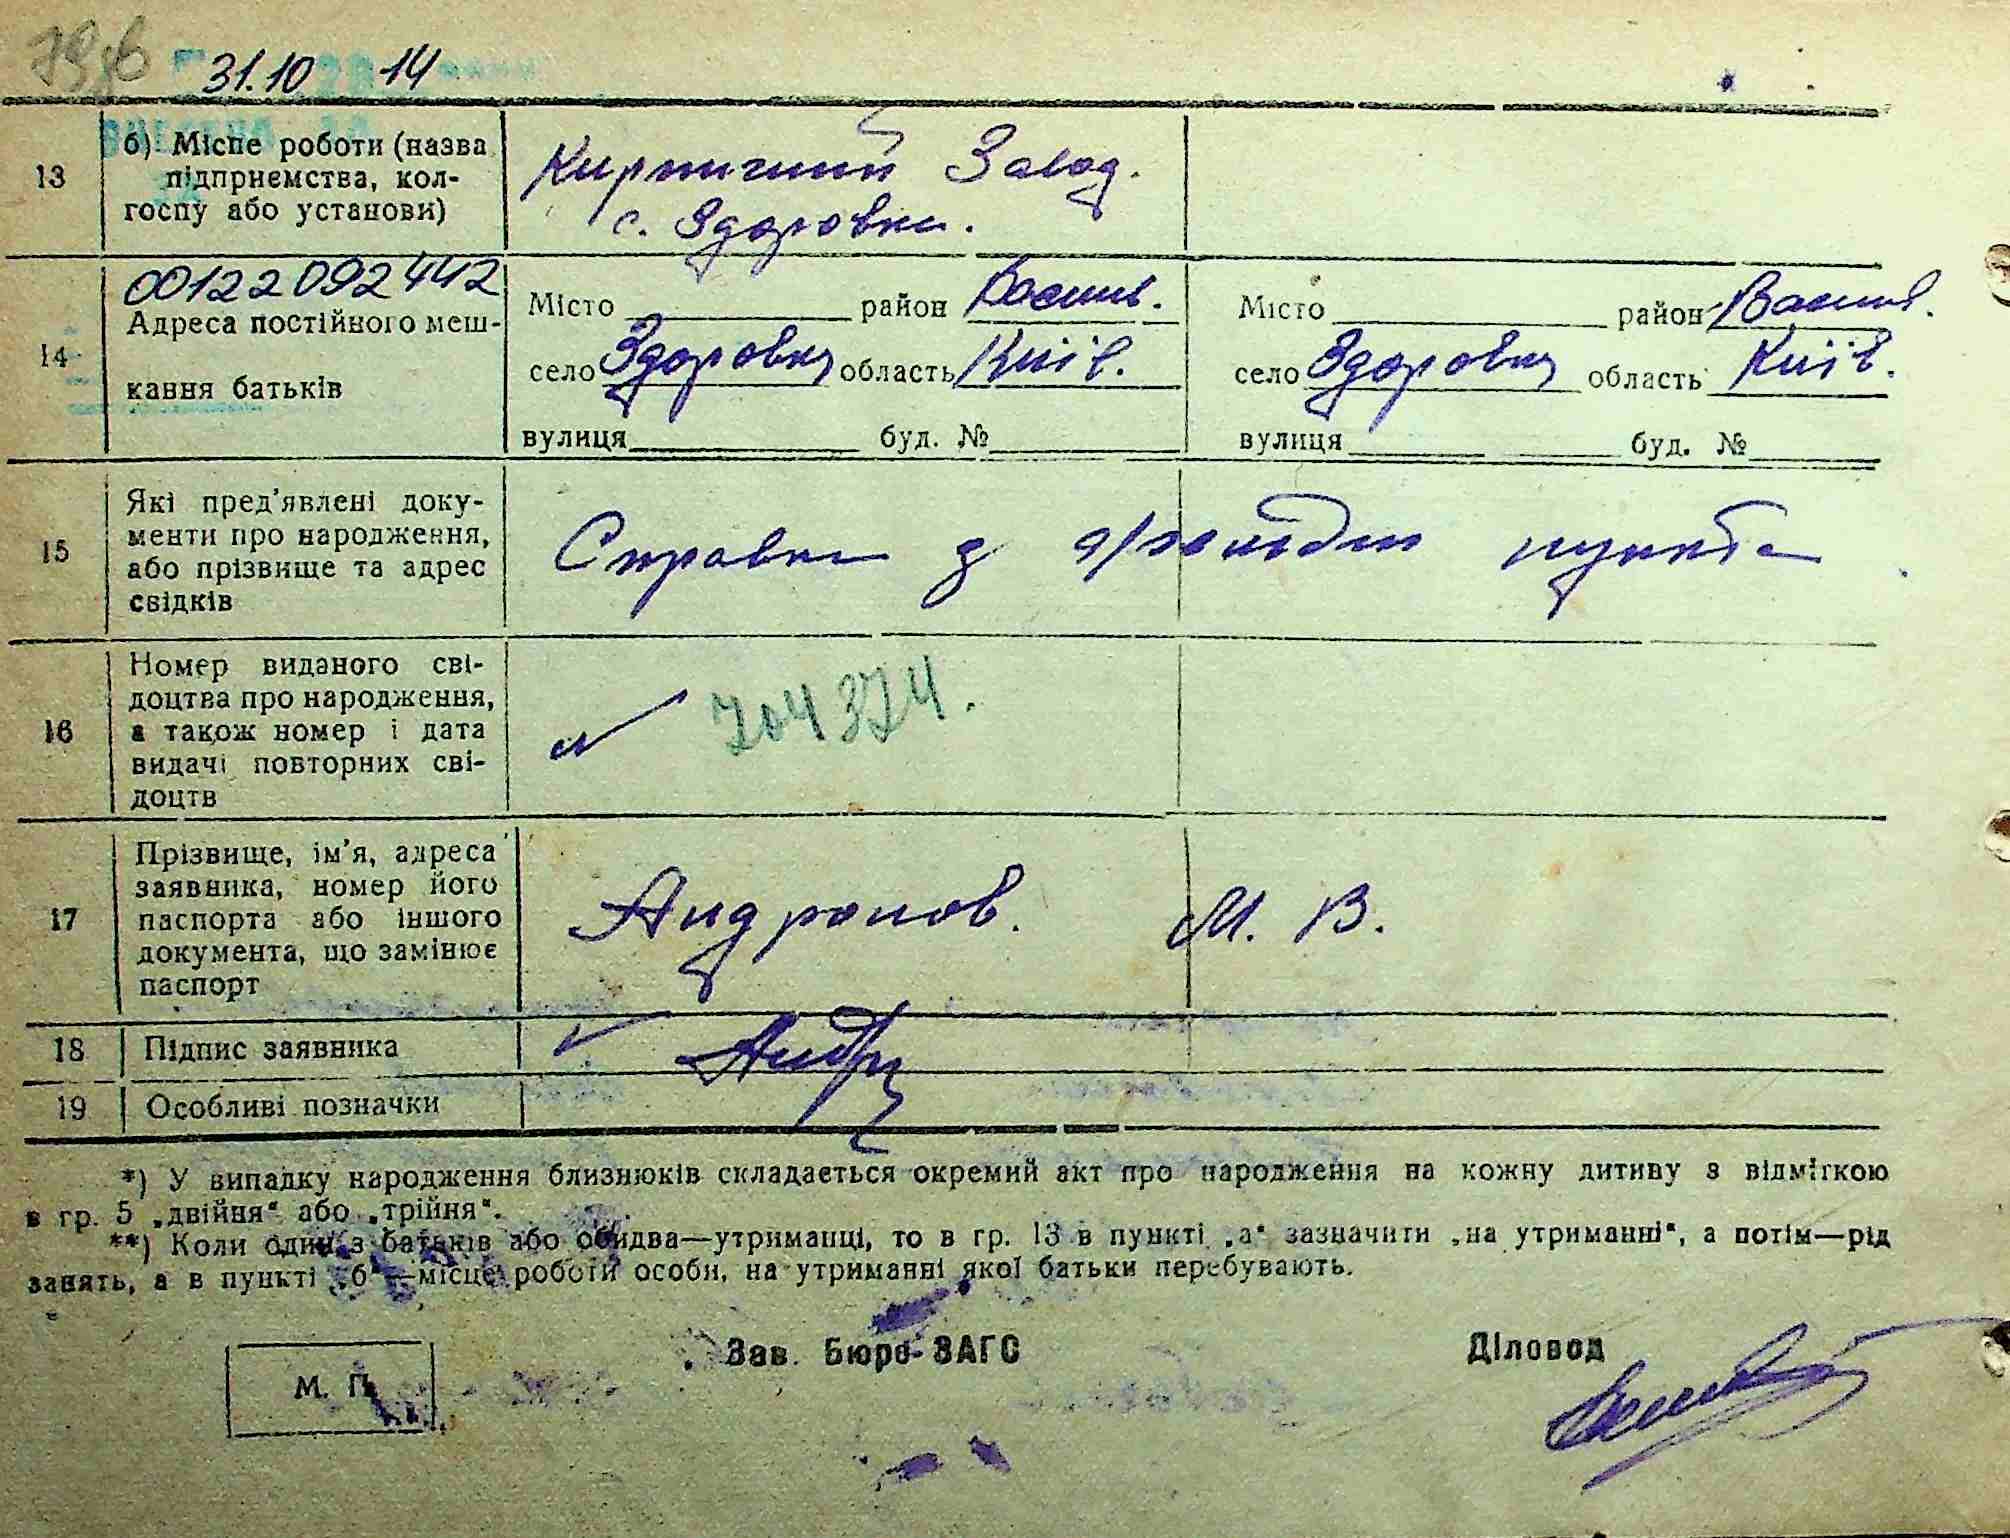 31.10 14
13
б) Місце роботи (назва підприємства, колгоспу або установи)
Кирпичний Завод.
с. Здоровка.
00122092442
14
Адреса постійного мешкання батьків
Місто район Васильк.
село Здоровка область Київ.
вулиця буд. №
Місто район Васильк.
село Здоровка область Київ.
вулиця буд. №
15
Які пред'явлені доку-
менти про народження,
або прізвище та адрес
свідків
Справка з пункта
16
Номер виданого сві-
доцтва про народження,
а також номер і дата
видачі повторних сві-
доцтв
704374.
17
Прізвище, ім'я, адреса
заявника, номер його
паспорта або іншого
документа, що замінює
паспорт
Андронов. М. В.
18
Підпис заявника
19
Особливі позначки
*) У випадку народження близнюків складається окремий акт про народження на кожну дитину з відміткою
в гр. 5 „двійня" або „трійня".
**) Коли один з батьків або обидва—утриманці, то в гр. 13 в пункті „а" зазначити „на утриманні", а потім—рід
занять, а в пункті „б"—місце роботи особи, на утриманні якої батьки перебувають.
Зав. Бюро ЗАГС
Діловод
М. П.